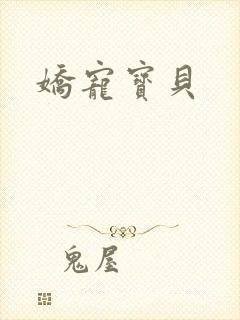 嬌寵寶貝
鬼屋